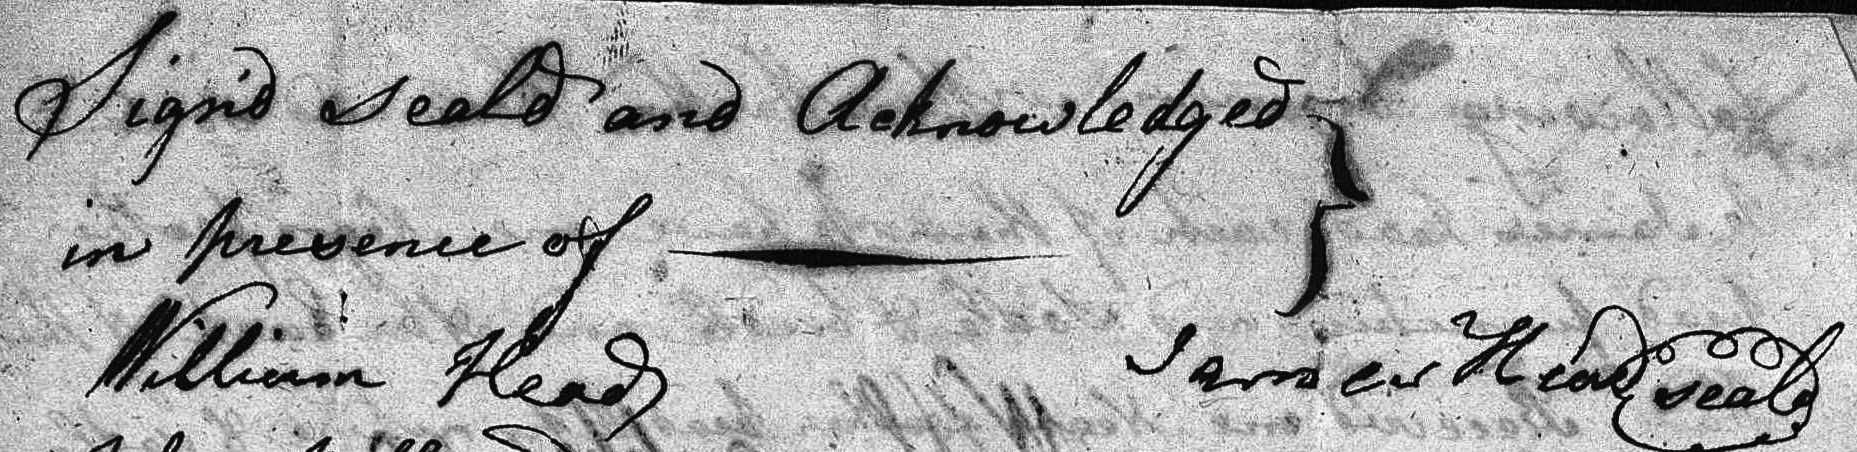 Sign'd Seald and Acknowledged
in presence of
William Head James Head seal